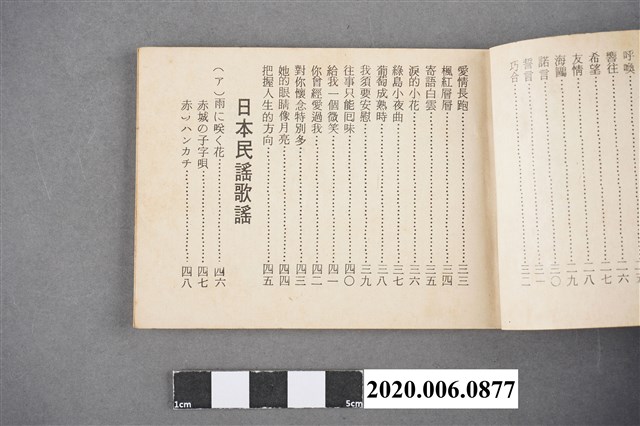 呼喚
嚮往
希望
友情
海鷗
諾言
誓言
巧合
一六
一七
一八
一九
二〇
二一
二二
愛情長跑……二三
楓紅層層……二四
寄語白雲……三五
淚的小花……三六
綠島小夜曲……三七
葡萄成熟時……三八
我須要安慰……三九
往事只能囘味……四〇
給我一個微笑……四一
你曾經愛過我……四二
對你懷念特別多……四三
她的眼睛像月亮……四四
把握人生的方向……四五
日本民謠歌謠
(ア)雨に咲く花……四六
赤城の子守唄……四七
赤いハンカチ……四八
1cm
5cm
2020.006.0877